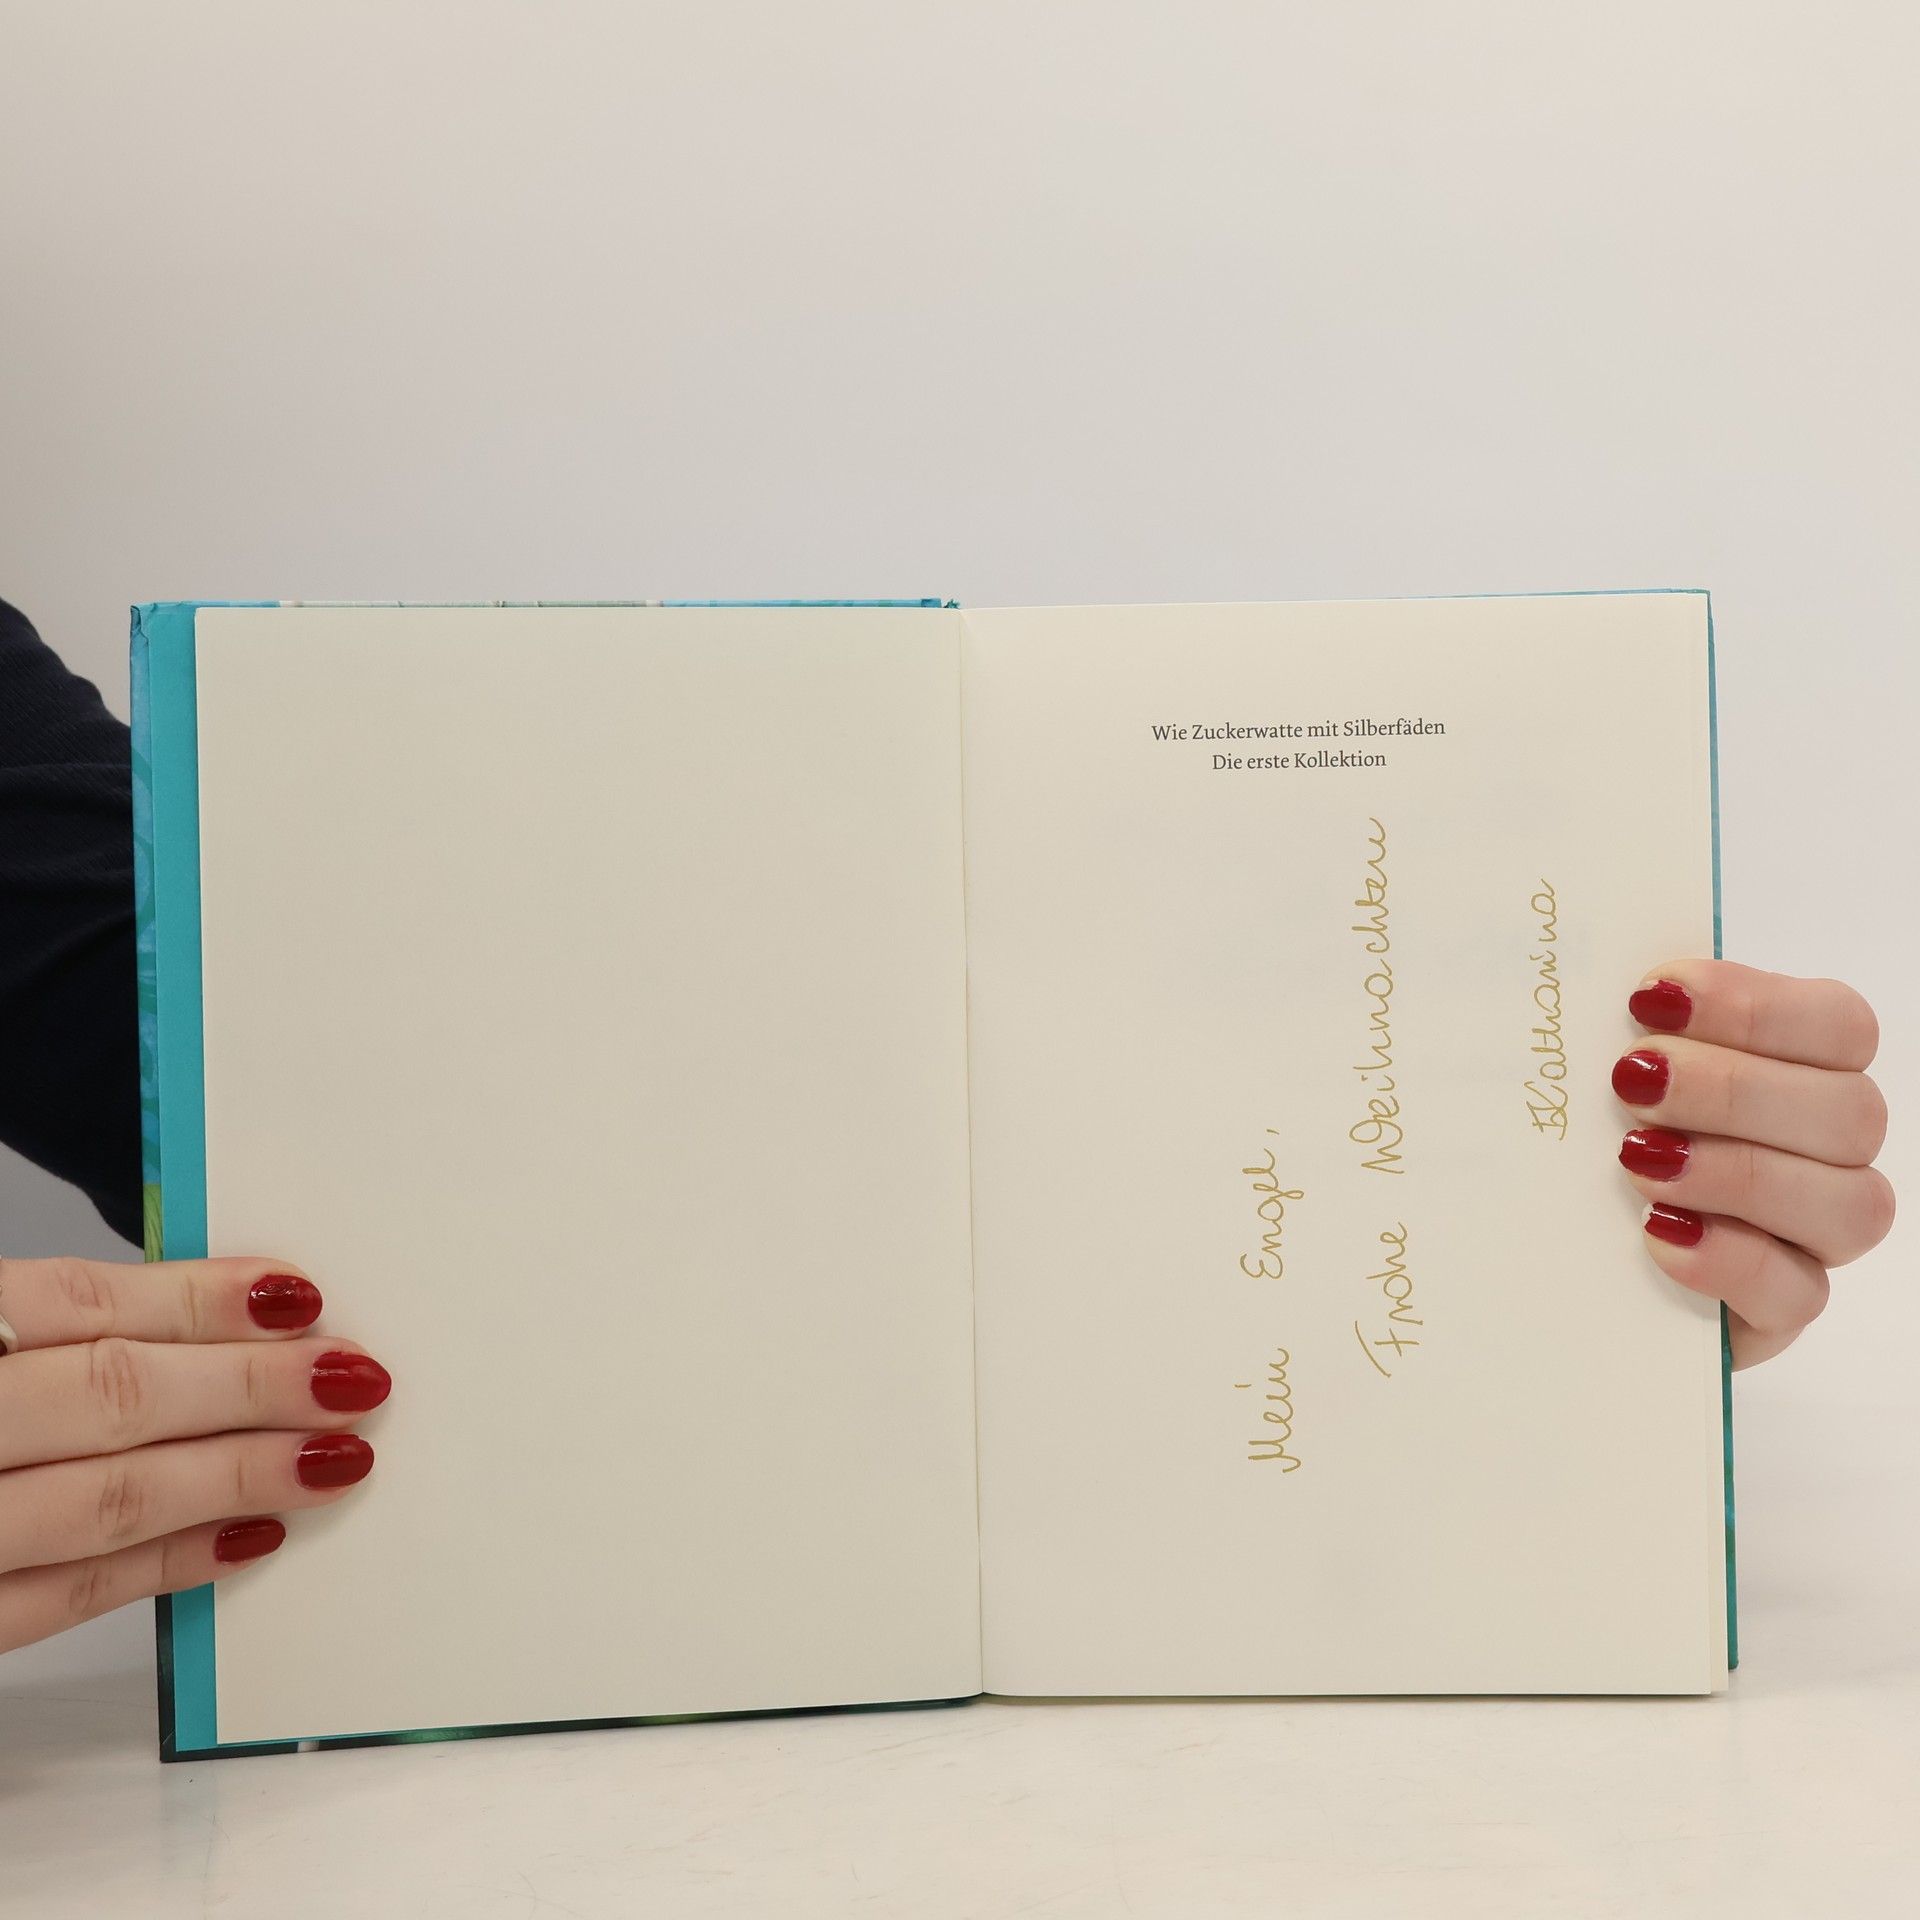 Wie Zuckerwatte mit Silberfäden
Die erste Kollektion
Mein Engel,
Frohe Weihnachten
Katharina